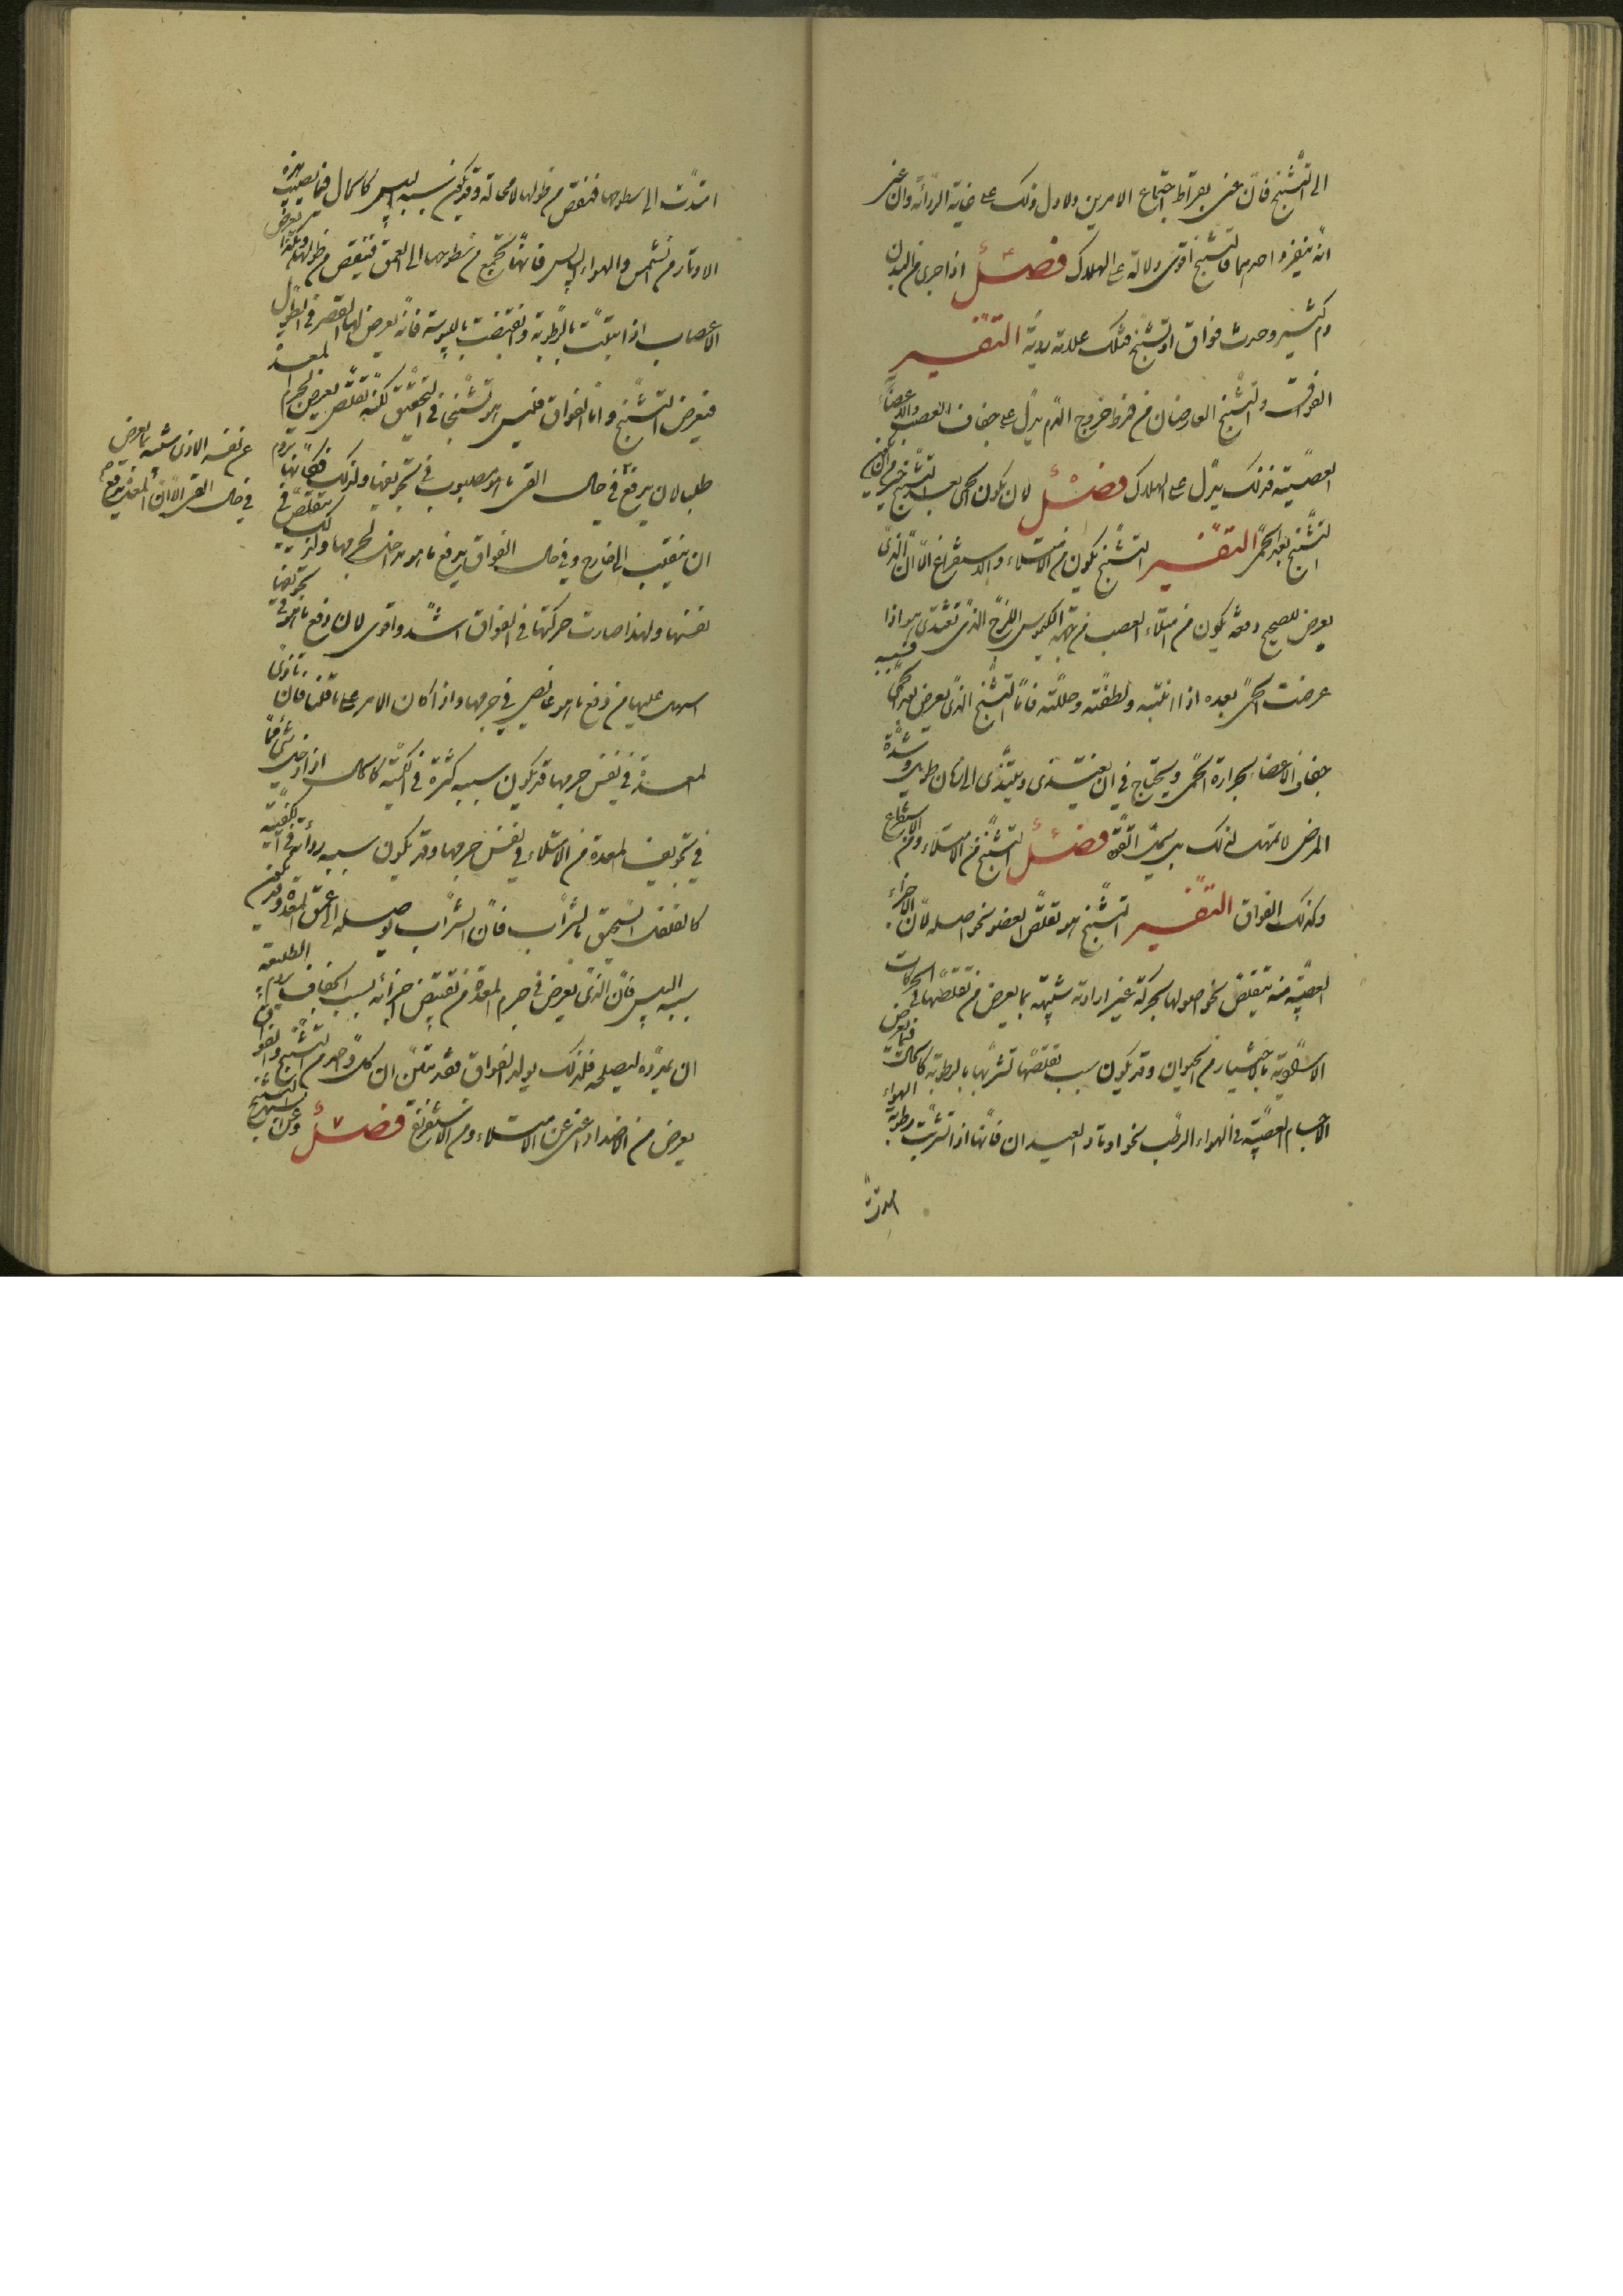 الى التشنج فان عنى بقراط اجتماع الامرين ولا دل ذلك على غاية الرداءة وان عنى
انه ينفرد احدهما فالتشنج اقوى دلالة على الهلاك فصل اذا جرى من البدن
دم كثير وحدث فواق او تشنج فتلك علامة ردية التفسير
الفواق والتشنج العارضان من فرط خروج الدم يدل على جفاف العصب والاعضاء
العصبية فذلك يدل على الهلاك فصل لان يكون الحمى بعد التشنج خير من ان يكون
التشنج بعد الحمى التفسير التشنج يكون من الامتلاء والاستفراغ الا ان الذي
يعرض للصحيح دفعة يكون من امتلاء العصب من الكيموس اللزج الذي تغتذى به اذا
عرضت الحمى بعده اذابته ولطفته وحللته فاما التشنج الذي يعرض بعد الحمى فسببه
جفاف الاعضاء بحرارة الحمى ويحتاج في ان يغتذى ويتندى الى زمان طويل وشدة
المرض لا تمهل لذلك بل يحل القوة فصل التشنج من الامتلاء ومن الاستفراغ
وكذلك الفواق التفسير التشنج هو تقلص العضو نحو اصله لان الاجزاء
العصبية منه يتقلص نحو اصولها بحركة غير ارادية شبيهة بما يعرض من تقلصها في الحركات
الاستوية بالاختيار من الحيوان وقد يكون سبب تقلصها تشربها بالرطوبة كالحال فيما يعرض
الاجسام العصبية في الهواء الرطب نحو اوتار العيدان فانها اذا تشربت رطوبة الهواء
امتدت
امتدت الى سطوحها فنقص من طولها لا محالة وقد يكون سببه اليبس كالحال فيما يصيب هذه
الاوتار من الشمس والهواء اليابس فانها تجتمع من سطوحها الى العمق فينقص من طولها وهكذا يعرض
الاعصاب اذا ابتلت بالرطوبة وتقبضت باليبوسة فانه يعرض لها القصر في الطول
فيعرض التشنج واما الفواق فليس هو تشنجا في التحقيق لكنه تقلص يعرض لجرم المعدة
طلب لان يدفع في حال القى ما هو مصبوب في تجويفها ولذلك فكانها تروم
ان ينقلب الى خارج وفي حال الفواق يدفع ما هو مداخل لجرمها ولذلك يتقلص في
نفسها ولهذا صارت حركتها في الفواق اشد واقوى لان دفع ما هو في تجويفها
اسهل عليها من دفع ما هو غائص في جرمها واذا كان الامر على ما قلنا فان تاذى
المعدة في نفس جرمها قد يكون سببه كثرة في الكمية كالحال اذا دخل شى ما
في تجويف المعدة من الامتلاء في نفس جرمها وقد يكون سببه رداءة في الكيفية
كالفلفل السحيق بالشراب فان الشراب يوصله الى عمق المعدة وقد يكون
سببه اليبس فان الذي يعرض في جرم المعدة من تقبض اجزائه بسبب الجفاف يروم الطبيعة
ان يمدده ليصلحه فلذلك يولد الفواق فقد تبين ان كل واحد من التشنج والفواق
يعرض من الاضداد اعنى عن الامتلاء ومن الاستفراغ فصل
عن نفسه الاذى شبيه بما يعرض
في حال القى الا ان المعدة يدفع